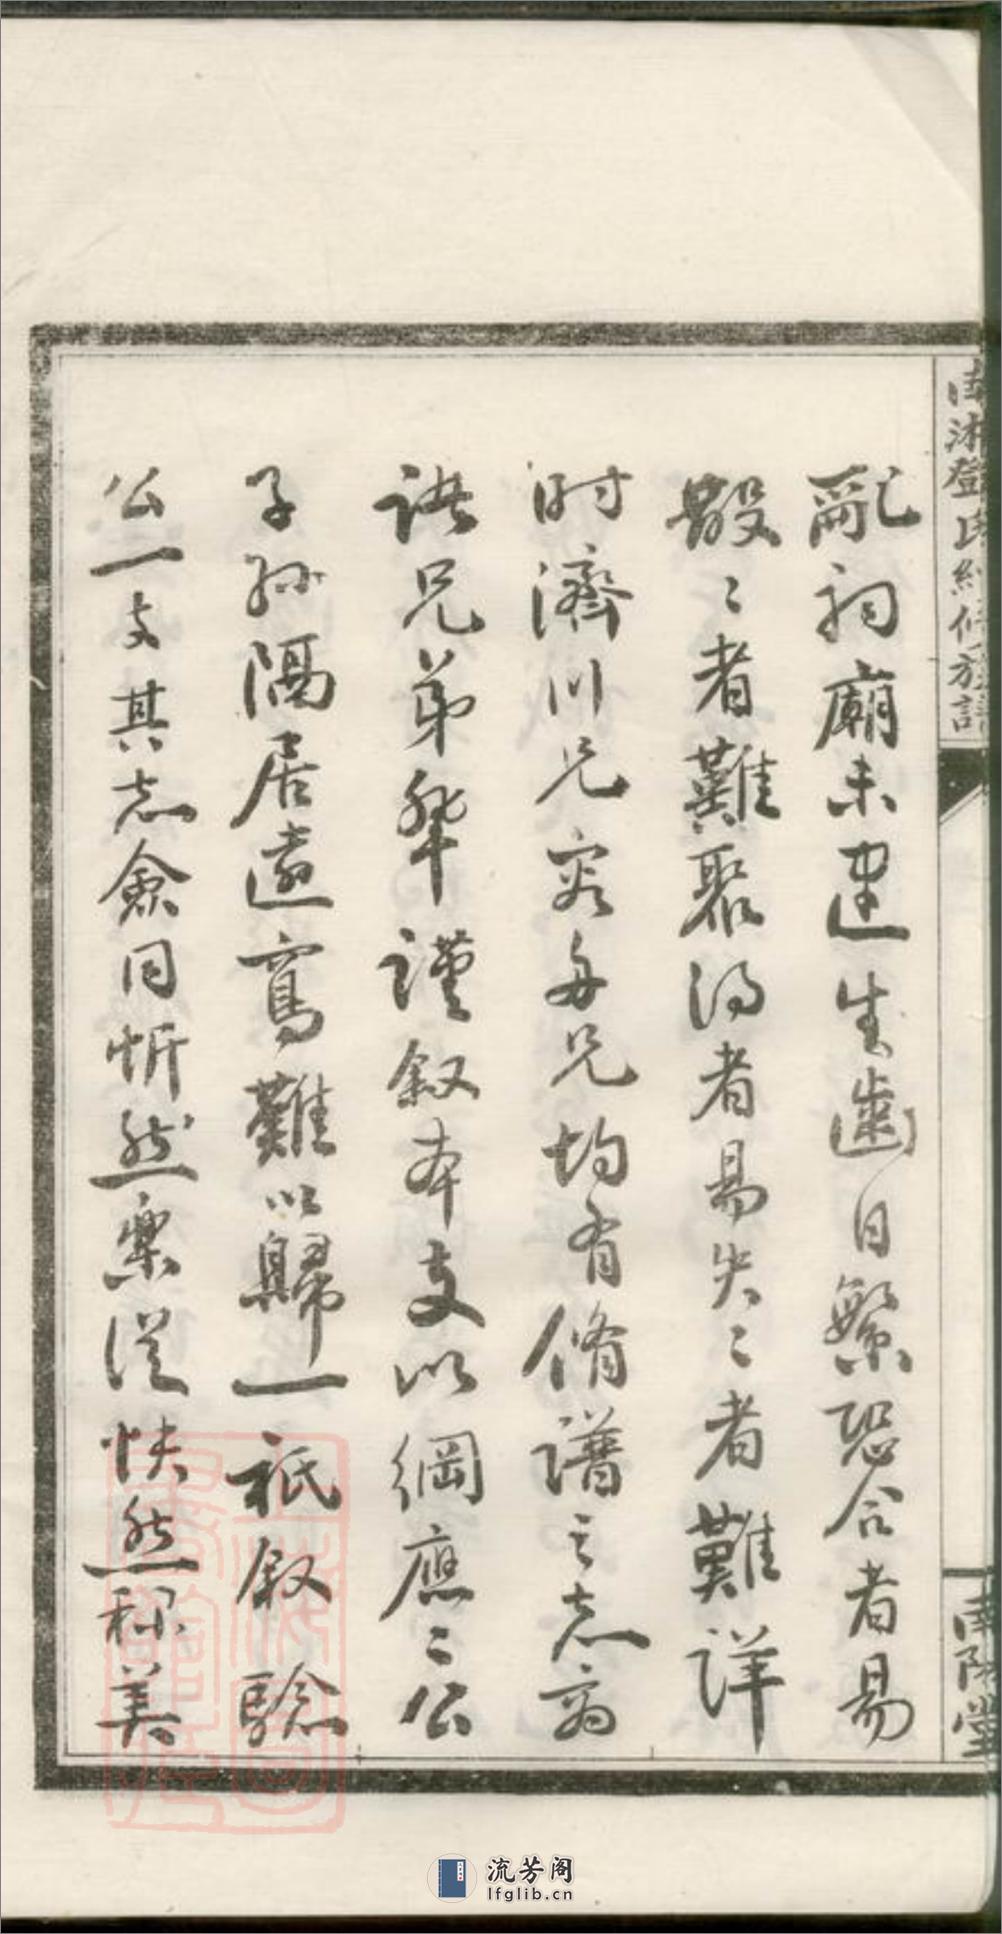 南湘鄧氏續修族譜
南陽堂
亂祠廟未建生齒日繁恐合者易
散〻者難聚得者易失〻者難詳
时濟川兄容舟兄均有脩譜之志商
諸兄弟輩謹叙本支以綱應〻公
子孫隔居遠寫難以歸一祇叙驗
公一支其志僉同忻然樂從快然称美
流芳阁
lfglib.cn